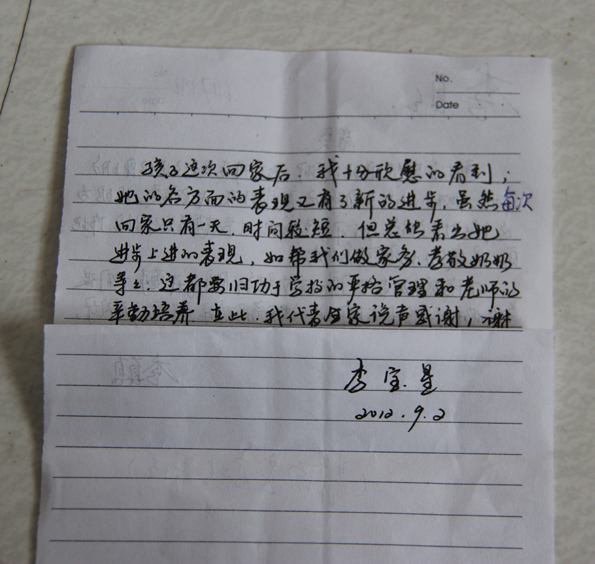 No.
Date
孩子这次回家后，我十分欣慰的看到，
她的各方面的表现又有了新的进步，虽然每次
回家只有一天，时间较短，但总能看出她
进步上进的表现，如帮我们做家务，孝敬奶奶
等等，这都要归功于学校的严格管理和老师的
辛勤培养 在此，我代表全家说声感谢，谢
李宝星
2012.9.2